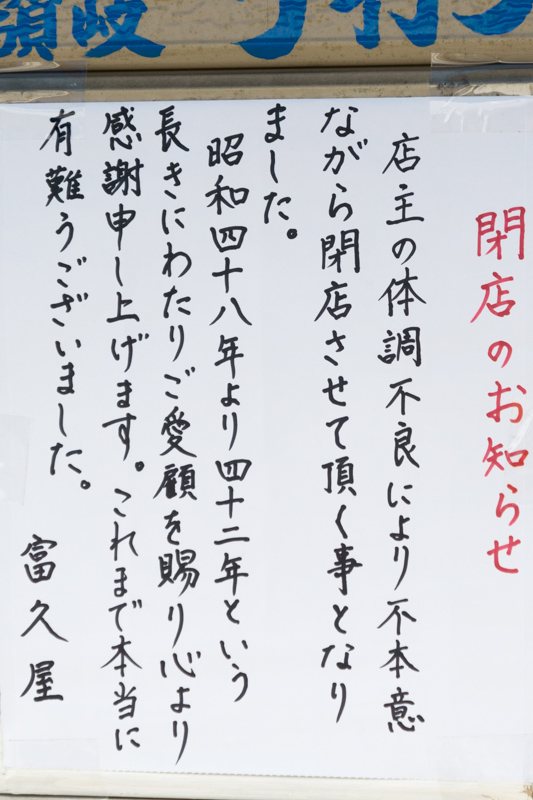 讃岐
閉店のお知らせ
店主の体調不良により不本意
ながら閉店させて頂く事となり
ました。
昭和四十八年より四十二年という
長きにわたりご愛顧を賜り心より
感謝申し上げます。これまで本当に
有難うございました。
富久屋